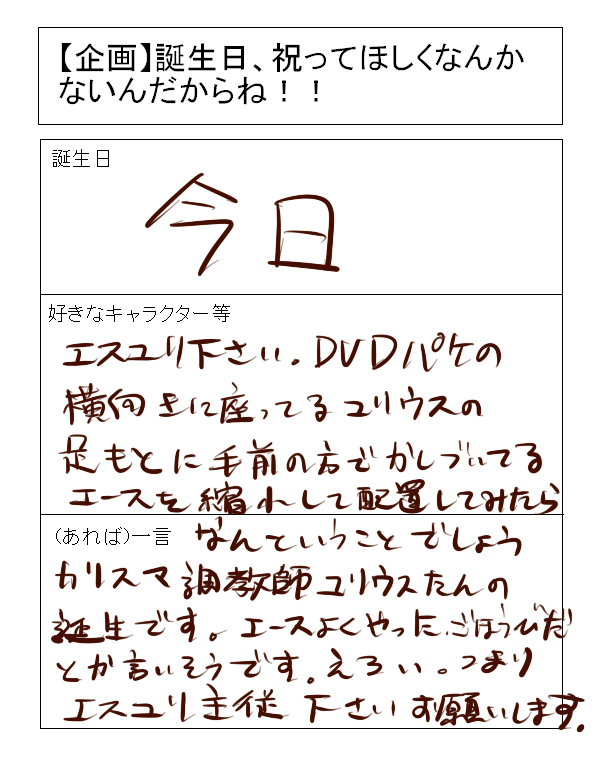 【企画】誕生日、祝ってほしくなんか
ないんだからね！！
誕生日
今日
好きなキャラクター等
エスユリ下さい。DVDパケの
横向きに座ってるユリウスの
足もとに手前の方でかしづいてる
エースを縮小して配置してみたら
(あれば)一言
なんということでしょう
カリスマ調教師ユリウスたんの
誕生です。エースよくやったごほうびだ
とか言いそうです。えろい。つまり
エスユリ主従下さいお願いします。